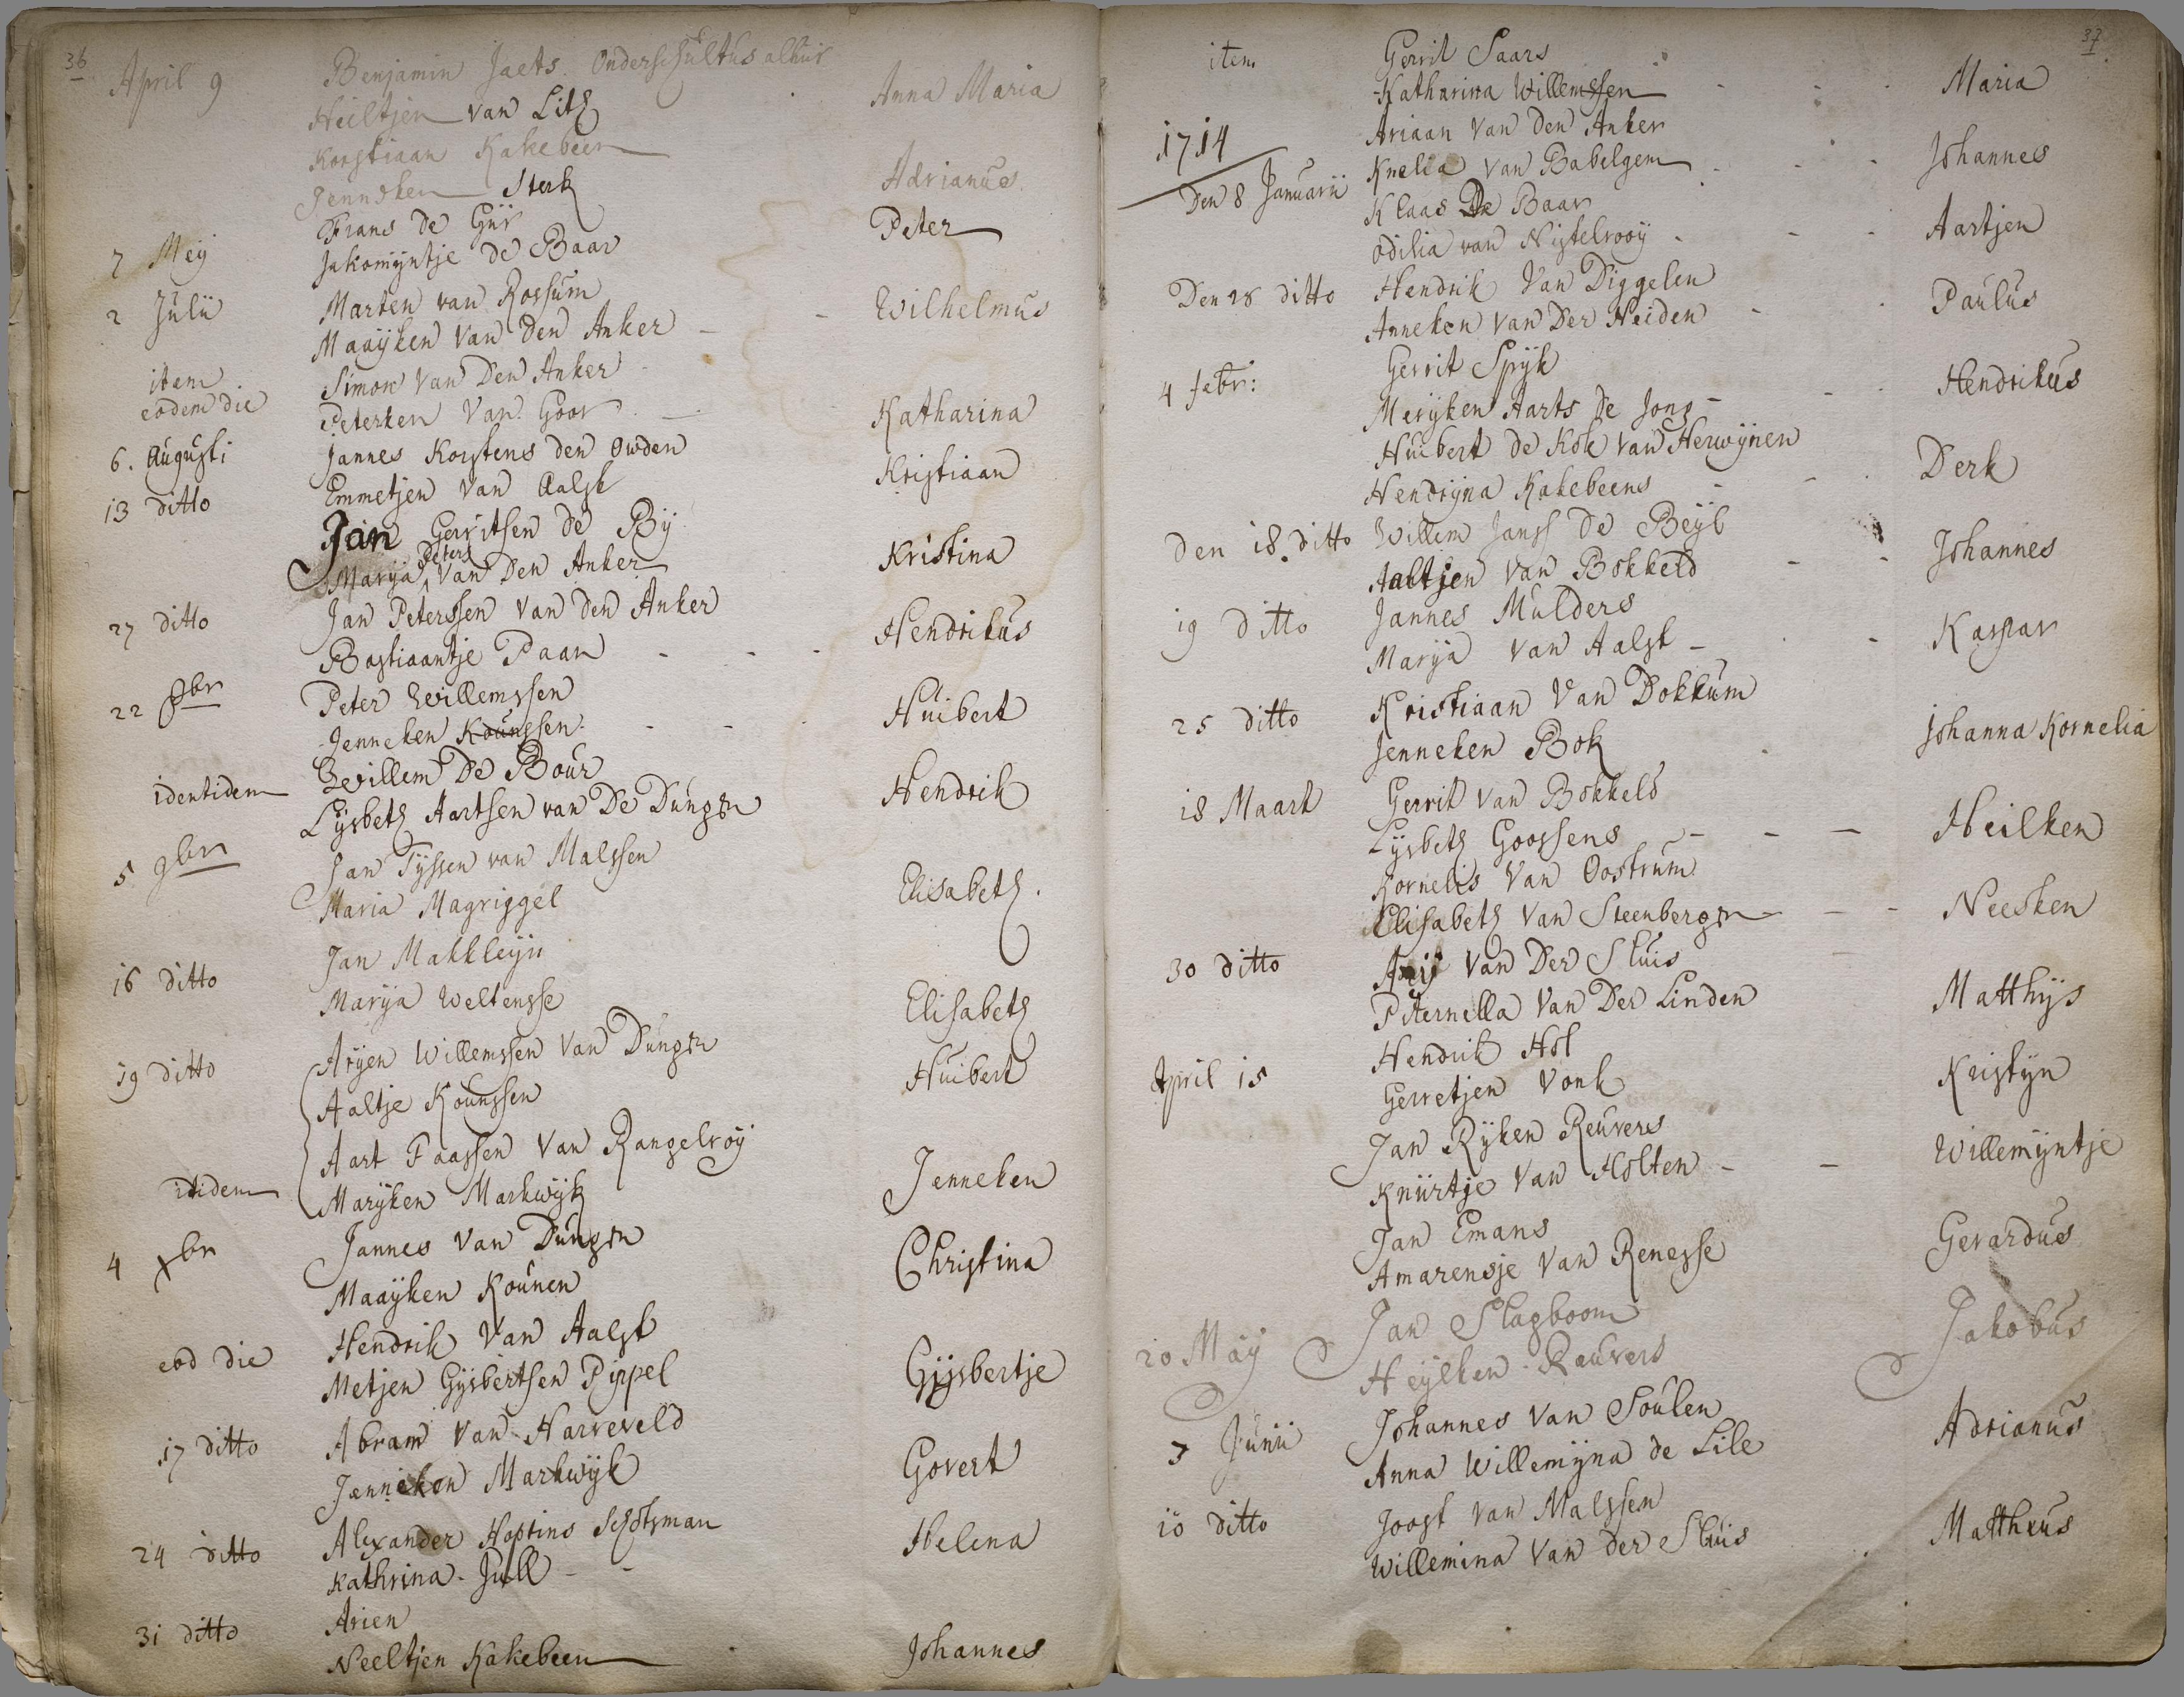 36
April 9 Benjamin Jaets. Onderschultus alhier
Heiltjen van Lith Anna Maria
Korstiaan Kakebeen
Jenneken Sterk Adrianus.
Frans de Gier
7 Meij Jakomijntje de Baar Peter
2 Julii Marten van Rossum
Maaijken Van Den Anker - - Wilhelmus
item Simon Van Den Anker
eodem die Peterken Van Goor Katharina
6. Augusti Jannes Korstens den Owden
13 ditto Emmetjen Van Aalst Kristiaan
Jan Gerritsen de Bij
Peters
Marija Van Den Anker Kristina
27 ditto Jan Peterssen Van den Anker
Bastiaantje Paan - - - Hendrikus
22 8br Peter Willemssen
Jenneken Kounssen - - Huibert
identidem Willem De Bour
Lijsbeth Aartsen van De Dungen Hendrik
5 9br Jan Tijssen van Malssen
Maria Magriggel Elisabeth.
16 ditto Jan Makkleijn
Marija Weltensse Elisabeth
19 ditto Arijen Willemssen Van Dungen
Aaltje Kounssen Huibert
Aart Faassen Van Rangelroij
itidem Marijken Markwijk Jenneken
4 Xbr Jannes Van Dungen
Maaijken Kounen Christina
eod die Hendrik Van Aalst
Metjen Gijsbertsen Pippel Gijsbertje
17 ditto Abram Van Harreveld
Janneken Markwijk Govert
24 ditto Alexander Hoptins Schotsman
Kathrina Jull - - Helena
31 ditto Arien
Neeltjen Kakebeen Johannes
37.
item Gerrit Saars
Katharina Willemssen - - - Maria
1714 Ariaan Van Den Anker
Knelia Van Babelgem - - - Johannes
Den 8 Januarii Klaas De Baar
Odilia van Nistelrooij - - - Aartjen
Den 28 ditto Hendrik Van Diggelen
Anneken Van Der Heiden - - Paulus
4 febr: Gerrit Spijk
Merijken Aarts de Jong - - - Hendrikus
Huibert de Kok van Herwijnen
Hendrijna Kakebeens - - - Derk
den 18. ditto Willem Janss De Beijl
Aaltjen Van Bokkeld - - Johannes
19 ditto Jannes Mulders
Marija Van Aalst - - - Kaspar
25 ditto Kristiaan Van Dokkum
Jenneken Bok - Johanna Kornelia
18 Maart Gerrit Van Bokkeld
Lijsbeth Goossens - - - Heilken
Kornelis Van Oostrum
Elisabeth Van Steenbergen - - - Neesken
30 ditto Arij Van Der Sluis
Piternella Van Der Linden Matthijs
April 15 Hendrik Hol
Gerretjen Vonk Kristijn
Jan Rijken Reuvers
Kniertje Van Holten - - Willemijntje
Jan Emans
Amarensje Van Renesse Gerardus
20 Maij Jan Slagboom
Heijlken Rauvers Jakobus
3 Junii Johannes Van Soulen
Anna Willemijna de Lile Adrianus
10 ditto Joost van Malssen
Willemina Van der Sluis . Mattheus